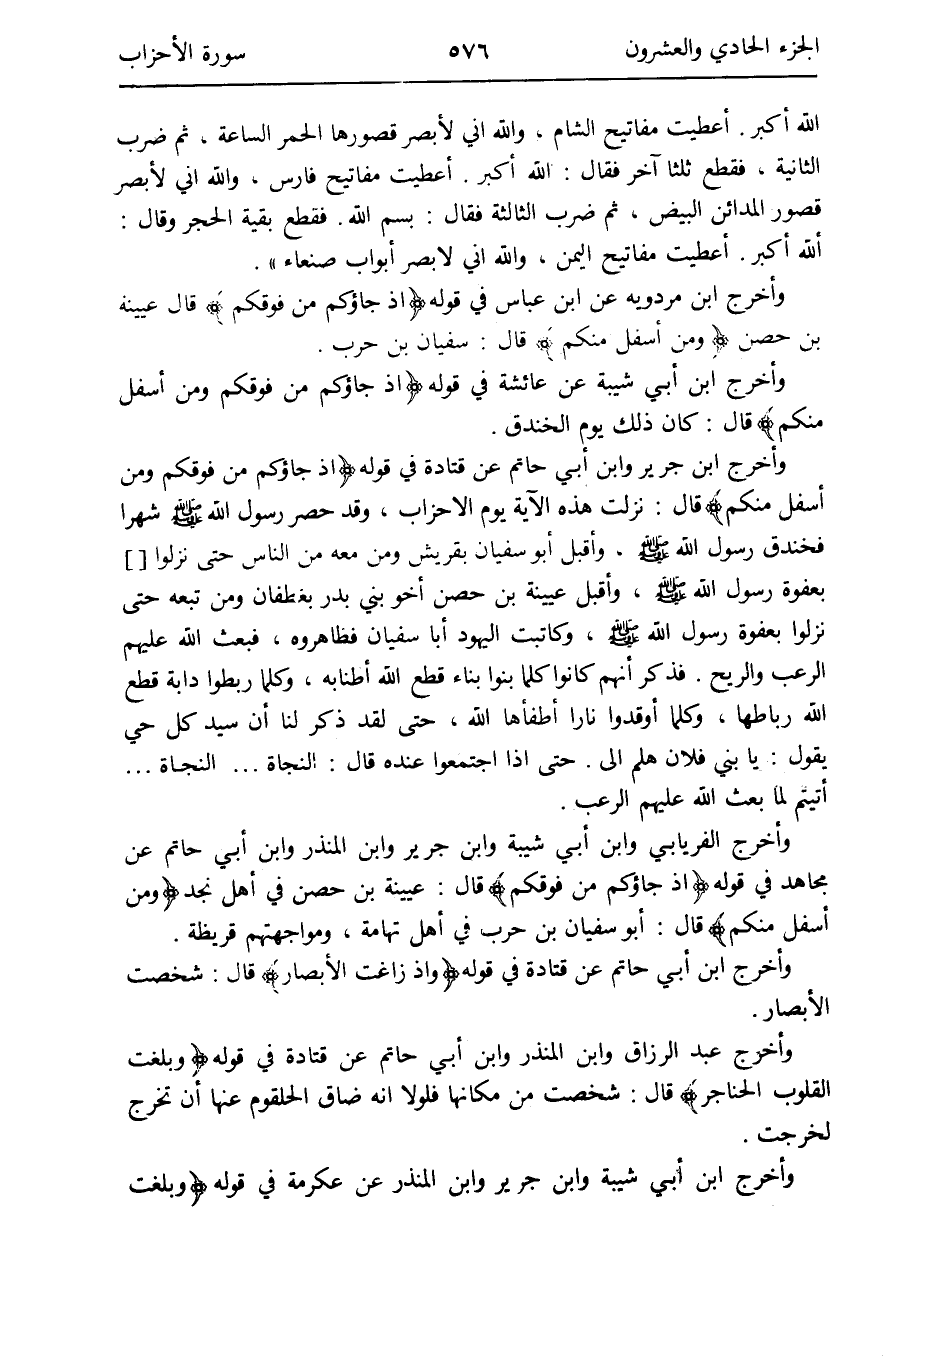 الجزء الحادي والعشرون ٥٧٦ سورة الأحزاب
الله أكبر . أعطيت مفاتيح الشام ، والله اني لأبصر قصورها الحمر الساعة ، ثم ضرب
الثانية ، فقطع ثلثا آخر فقال : الله أكبر . أعطيت مفاتيح فارس ، والله اني لأبصر
قصور المدائن البيض ، ثم ضرب الثالثة فقال : بسم الله . فقطع بقية الحجر وقال :
ألله أكبر . أعطيت مفاتيح اليمن ، والله اني لابصر أبواب صنعاء » .
وأخرج ابن مردويه عن ابن عباس في قوله ﴿ اذ جاؤكم من فوقكم ﴾ قال عيينة
بن حصن ﴿ ومن أسفل منكم ﴾ قال : سفيان بن حرب .
وأخرج ابن أبي شيبة عن عائشة في قوله ﴿ اذ جاؤكم من فوقكم ومن أسفل
منكم ﴾ قال : كان ذلك يوم الخندق .
وأخرج ابن جرير وابن أبي حاتم عن قتادة في قوله ﴿ اذ جاؤكم من فوقكم ومن
أسفل منكم ﴾ قال : نزلت هذه الآية يوم الاحزاب ، وقد حصر رسول الله ﷺ شهرا
فخندق رسول الله ﷺ ، وأقبل أبو سفيان بقريش ومن معه من الناس حتى نزلوا [ ]
بعفوة رسول الله ﷺ ، وأقبل عيينة بن حصن أخو بني بدر بغطفان ومن تبعه حتى
نزلوا بعفوة رسول الله ﷺ ، وكاتبت اليهود أبا سفيان فظاهروه ، فبعث الله عليهم
الرعب والريح . فذكر أنهم كانوا كلما بنوا بناء قطع الله أطنابه ، وكلما ربطوا دابة قطع
الله رباطها ، وكلما أوقدوا نارا أطفأها الله ، حتى لقد ذكر لنا أن سيد كل حي
يقول : يا بني فلان هلم الى . حتى اذا اجتمعوا عنده قال : النجاة ... النجاة ...
أتيتم لما بعث الله عليهم الرعب .
وأخرج الفريابي وابن أبي شيبة وابن جرير وابن المنذر وابن أبي حاتم عن
مجاهد في قوله ﴿ اذ جاؤكم من فوقكم ﴾ قال : عيينة بن حصن في أهل نجد ﴿ ومن
أسفل منكم ﴾ قال : أبو سفيان بن حرب في أهل تهامة ، ومواجهتهم قريظة .
وأخرج ابن أبي حاتم عن قتادة في قوله ﴿ واذ زاغت الأبصار ﴾ قال : شخصت
الأبصار .
وأخرج عبد الرزاق وابن المنذر وابن أبي حاتم عن قتادة في قوله ﴿ وبلغت
القلوب الحناجر ﴾ قال : شخصت من مكانها فلولا انه ضاق الحلقوم عنها أن تخرج
لخرجت .
وأخرج ابن أبي شيبة وابن جرير وابن المنذر عن عكرمة في قوله ﴿ وبلغت